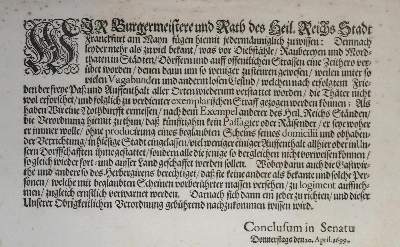 WIR Burgermeistere und Rath des Heil. Reichs Stadt
Franckfurt am Mayn fügen hiemit jedermänniglich zuwissen: Demnach
leyder mehr als zuviel bekant/ was vor Diebstähle/ Raubereyen und Mord-
thaten in Städten/ Dörffern und auff offentlichen Strassen eine Zeithero ver-
übet worden/ denen dann um so weniger zusteuren gewesen/ weilen unter so
vielen Vagabunden und anderm losen Gesind/ welchen nach erfolgtem Frie-
den der freye Paß und Auffenthalt aller Orten wiederum verstattet worden/ die Thäter nicht
wol erforschet/ und folglich zu verdienter exemplarischen Straff gezogen werden können: Als
haben Wir eine Nothdurfft ermessen/ nach dem Exempel anderer des Heil. Reichs Ständen/
die Verordnung hiemit zuthun/ daß fürnsthin kein Passagier oder Räisender/ er seye woher
er immer wolle/ ohne producirung eines beglaubten Scheins seines domicilii und obhaben-
der Verrichtung/ in hiesige Stadt eingelassen/ viel weniger einiger Auffenthalt allhier oder in Un-
sern Dorffschafften ihme gestattet/ sondern alle die jenige so dergleichen nicht vorweisen können/
so gleich wieder fort/ und ausser Land geschaffet werden sollen. Wobey dann auch die Gastwir-
the und andere so des Herbergirens berechtiget/ daß sie keine andere als bekante und solche Per-
sonen/ welche mit beglaubten Scheinen vorberührter massen versehen/ zu logiment auffneh-
men/ zugleich ernstlich verwarnet werden. Darnach sich dann ein jeder zu richten/ und dieser
Unserer Obrigkeitlichen Verordnung gebührend nachzukommen wissen wird.
Conclusum in Senatu
Donnerstags den 20. April. 1699.